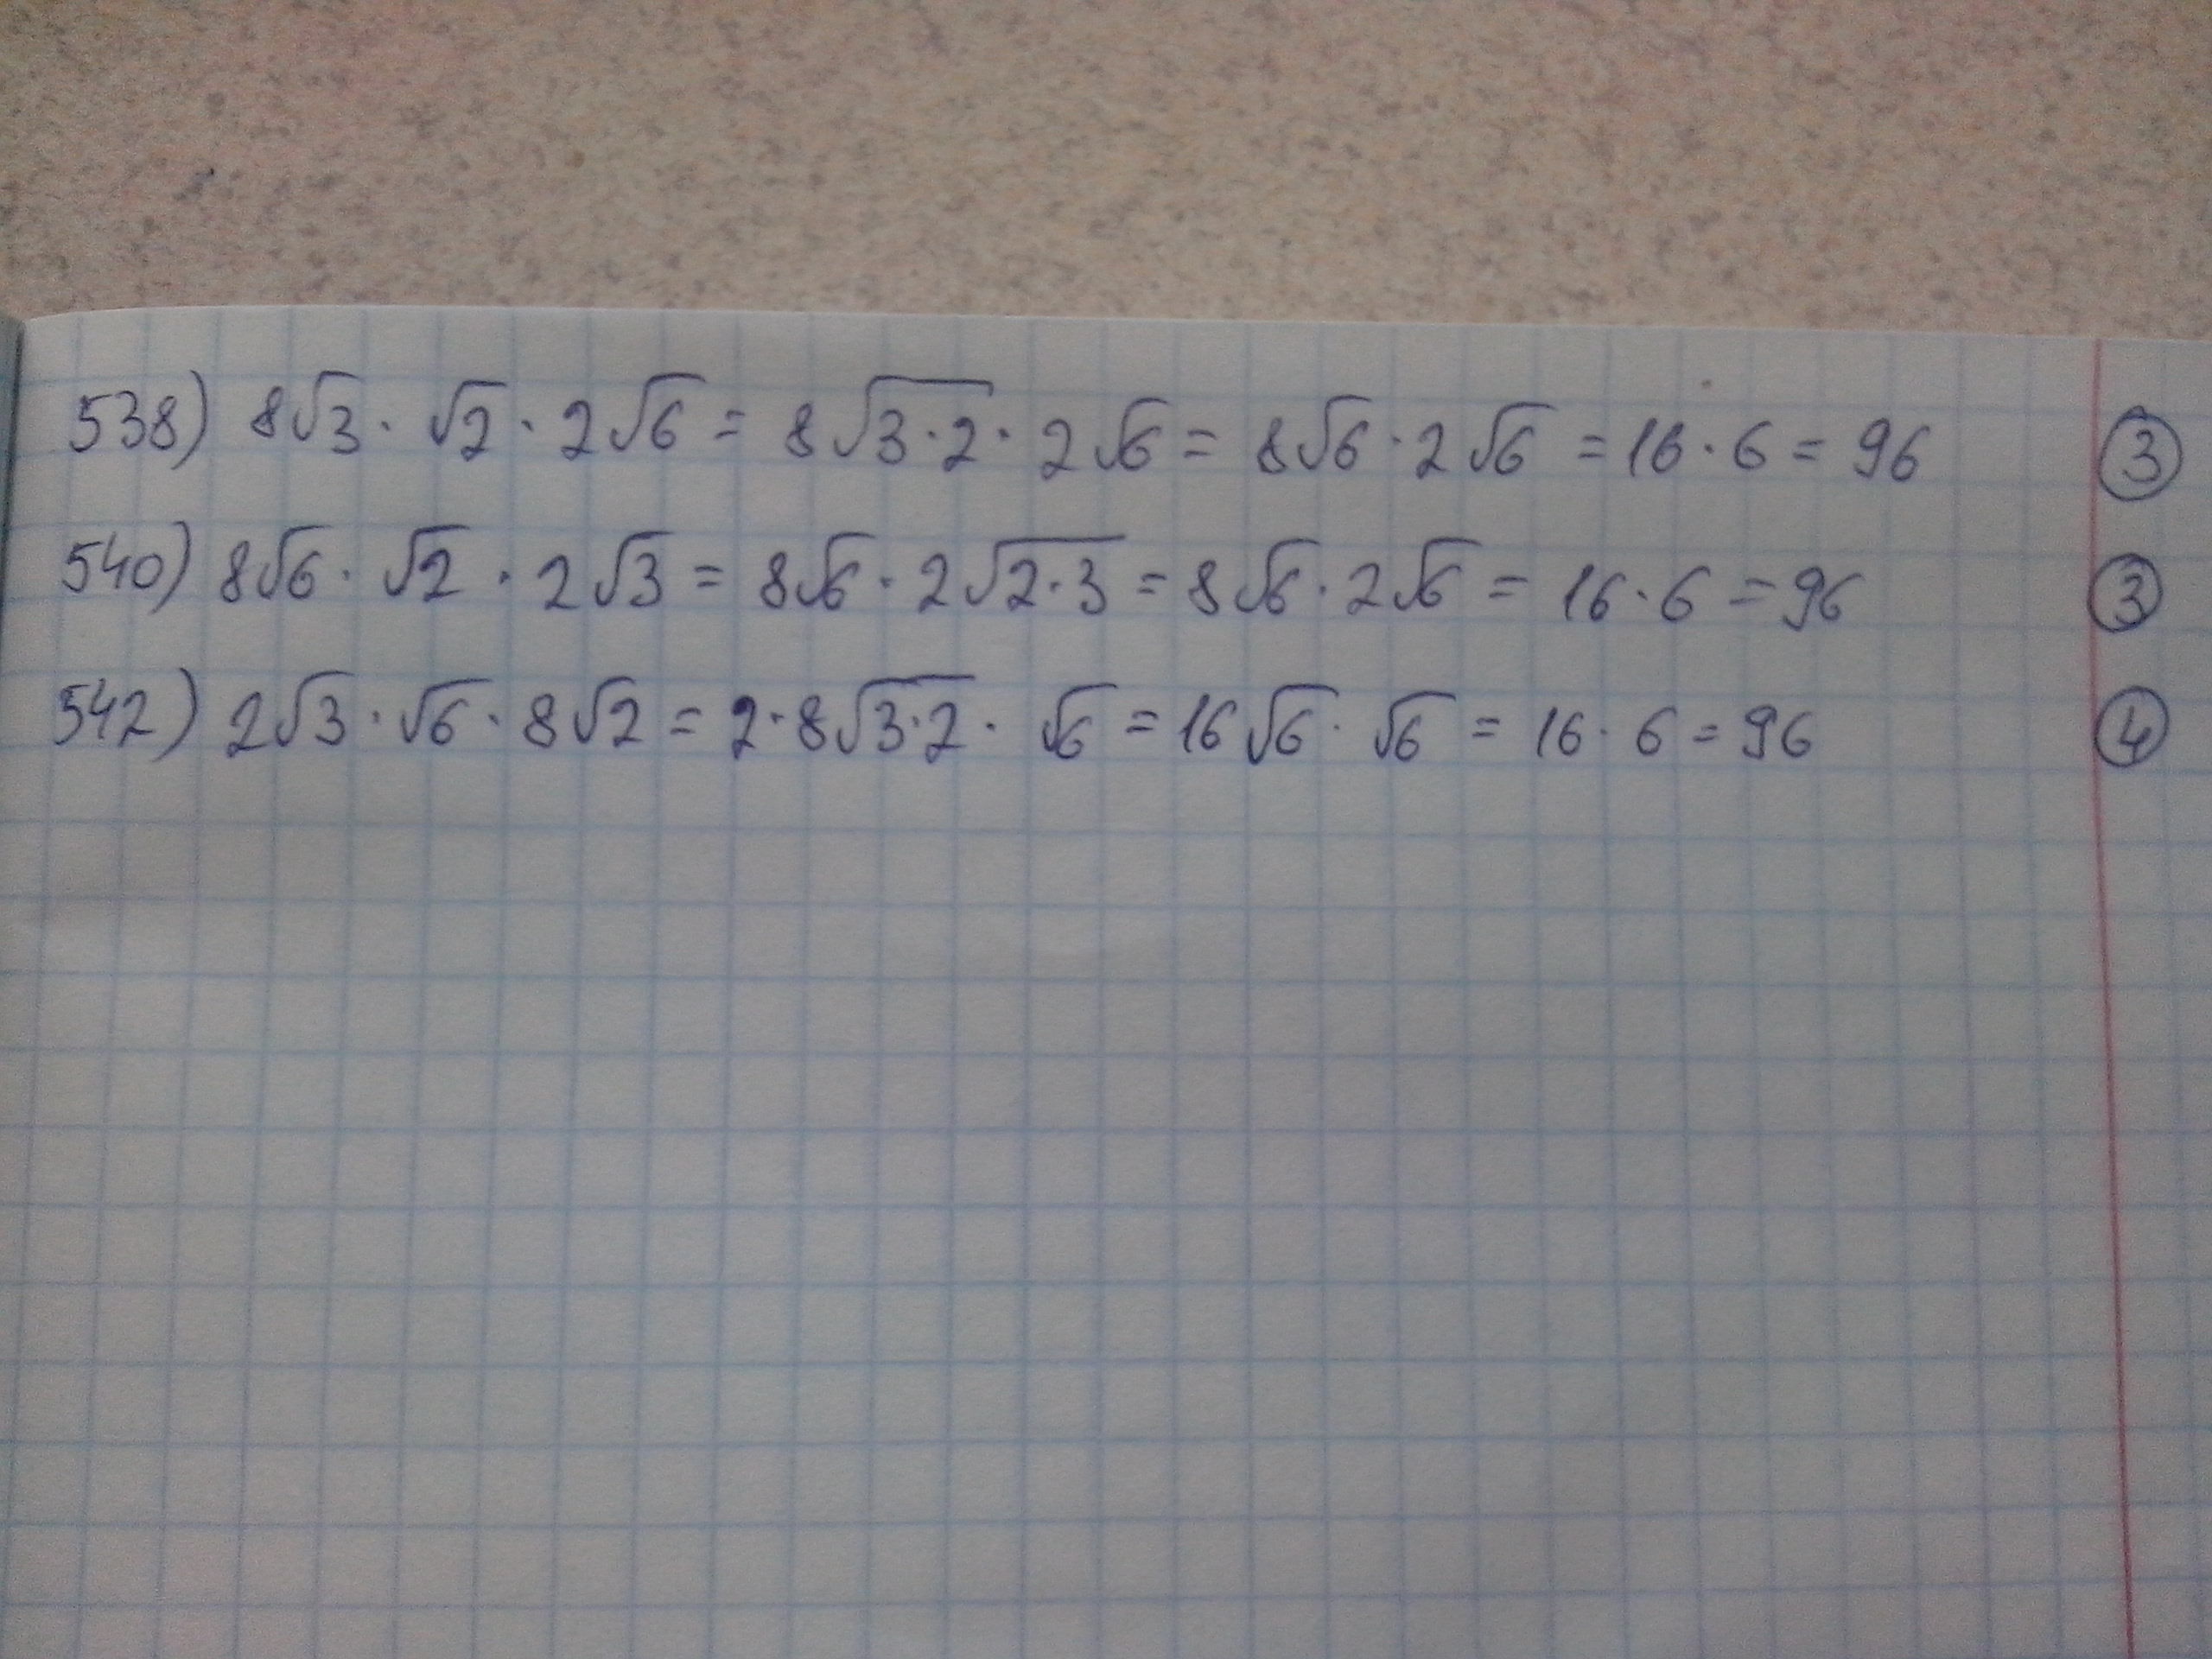 538) 8√3 · √2 · 2√6 = 8√(3·2) · 2√6 = 8√6 · 2√6 = 16 · 6 = 96 ③
540) 8√6 · √2 · 2√3 = 8√6 · 2√(2·3) = 8√6 · 2√6 = 16 · 6 = 96 ③
542) 2√3 · √6 · 8√2 = 2·8√(3·2) · √6 = 16√6 · √6 = 16 · 6 = 96 ④